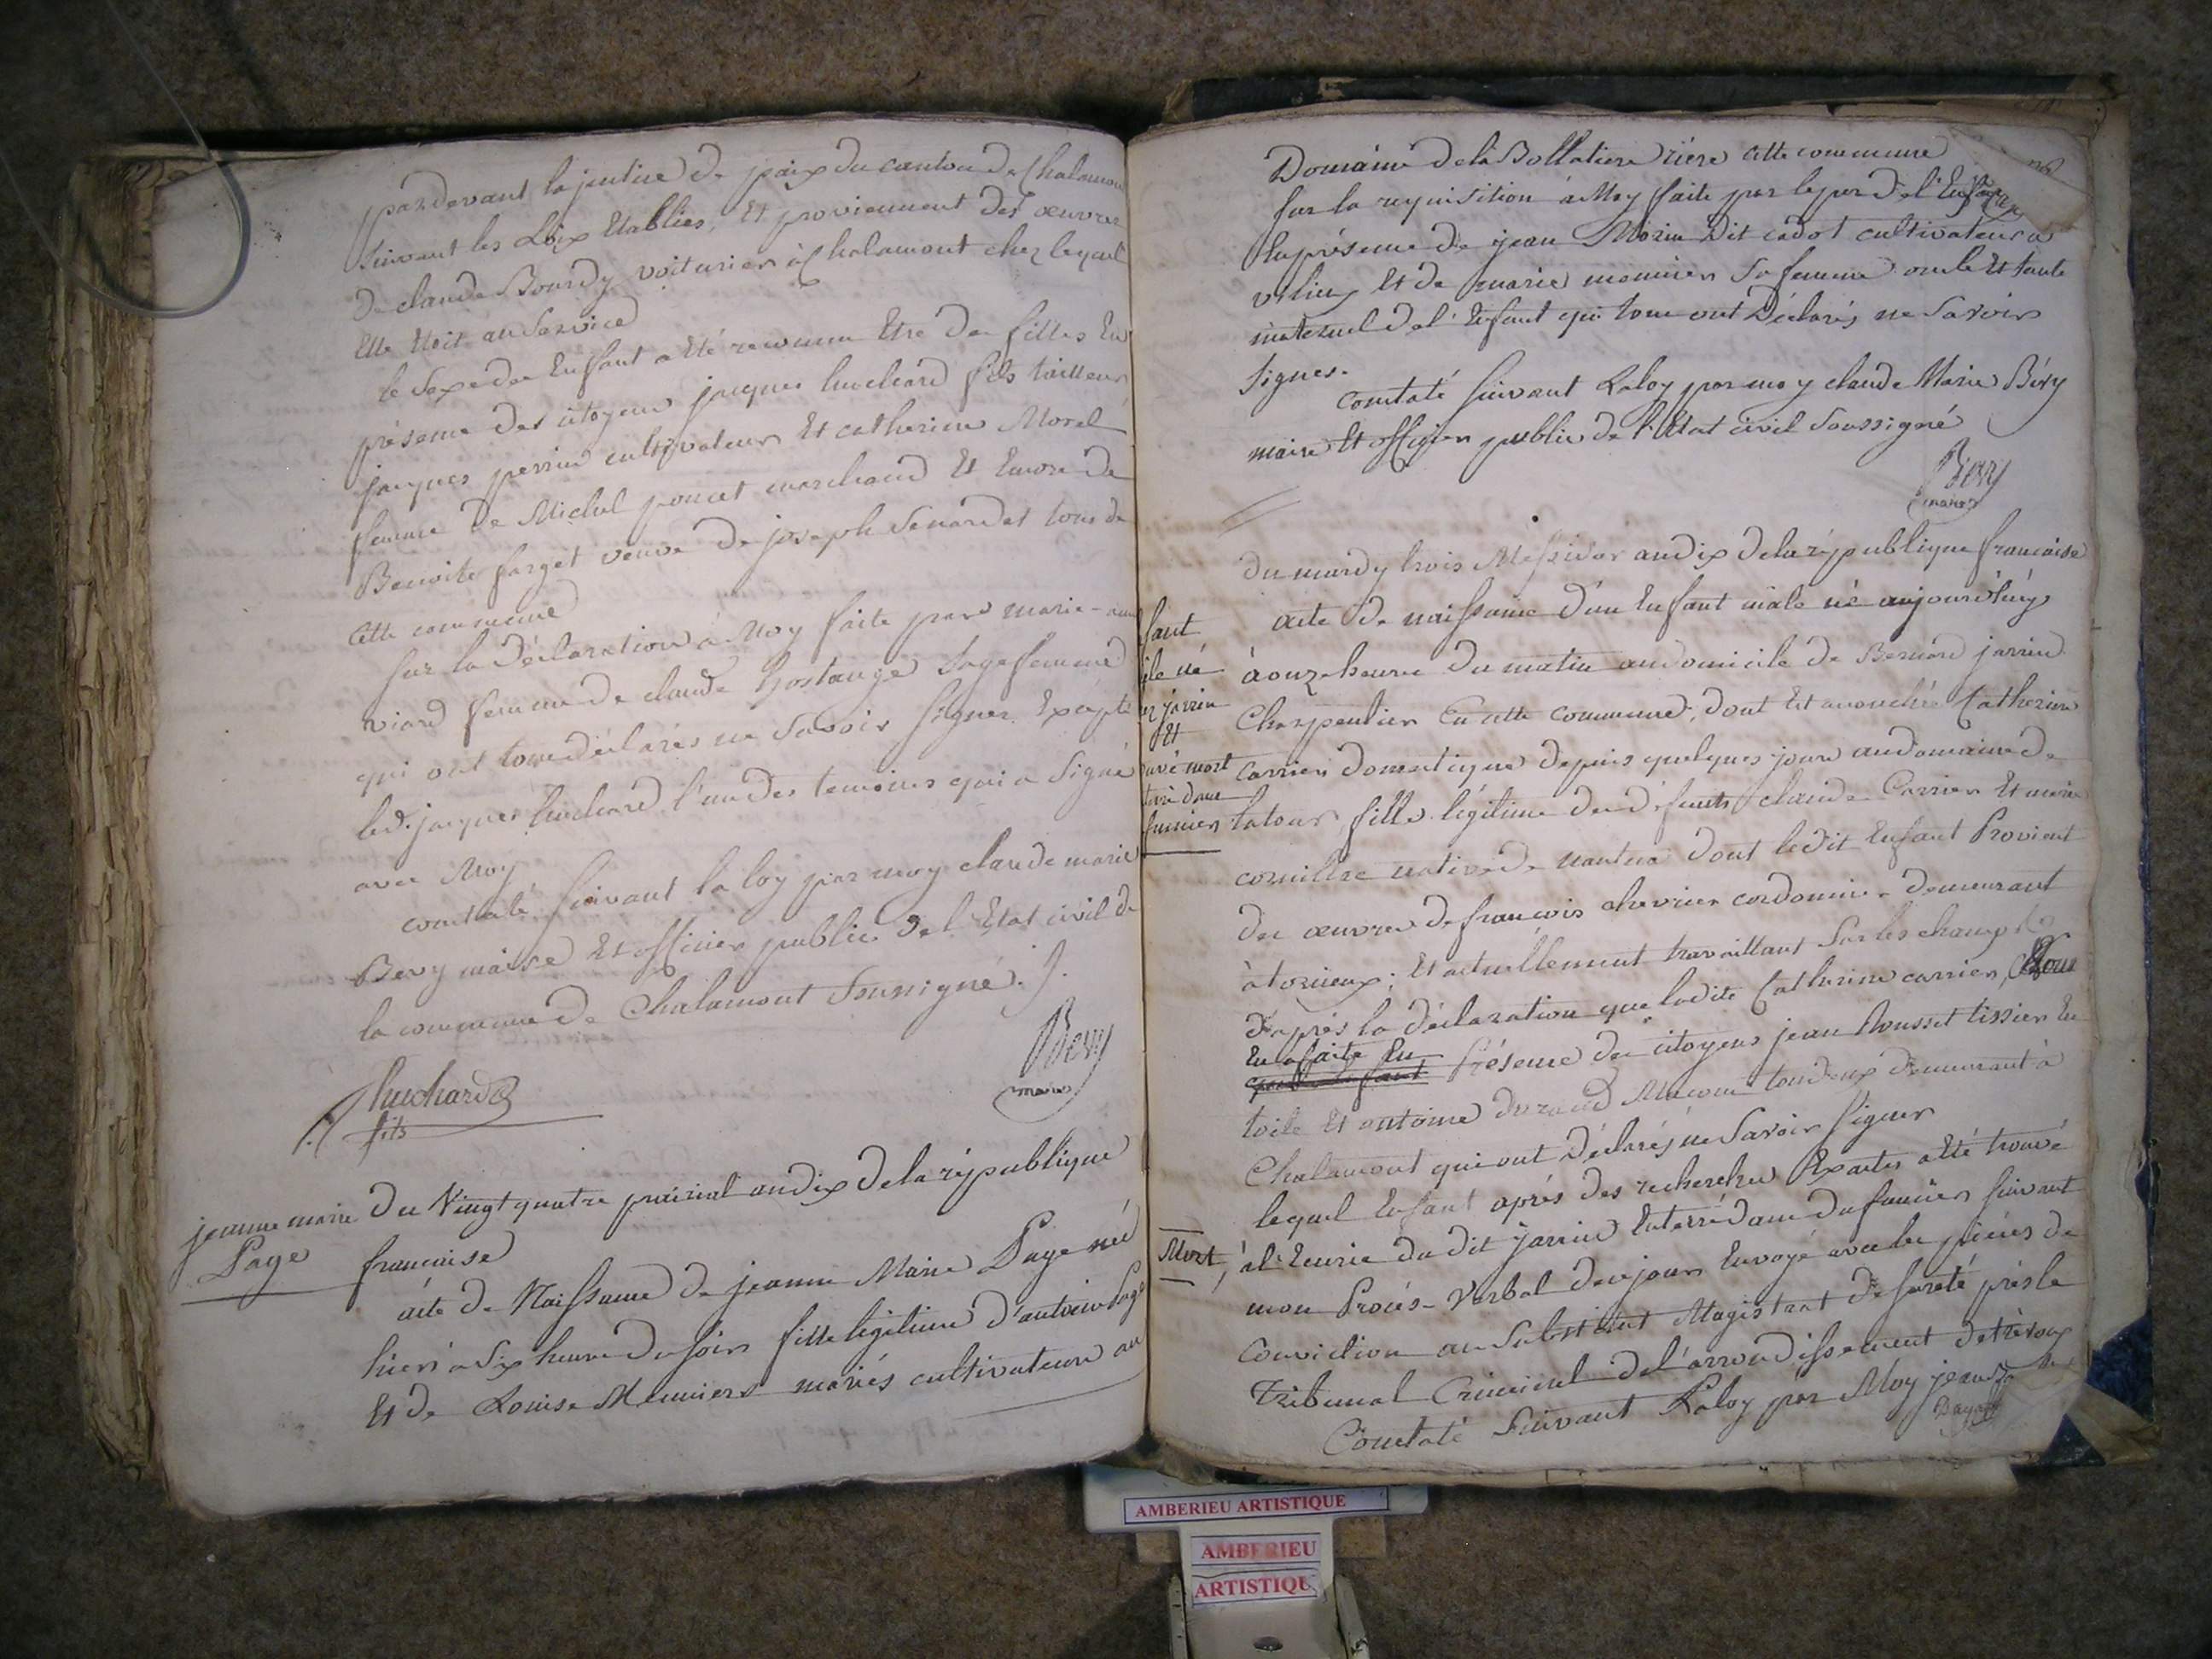 pardevant la justice de paix du canton de Chalamon
suivant les Loix Etablies, Et proviennent des œuvres
de claude Bourdy voiturier à Chalamont chez lequel
Elle Etoit au service
le sexe des Enfant a Eté reconnu Etre de filles En
présence des citoyens jacques huchard fils tailleur
jacques perrin cultivateur Et catherine Morel
femme de Michel poncet marchand Et Encore de
Benoite farget veuve de joseph Senardet tous de
cette commune
sur la déclaration à Moy faite par marie-anne
viard femme de claude hostange sage femme
qui ont tous déclarés ne savoir signer Excepté
led. jacques huchard l'un des temoins qui a signé
avec Moy
constaté suivant la loy par moy claude marie
Bevy maire Et officier public de l'Etat civil de
la commune de Chalamont soussigné.
huchard
fils
Bevy
maire
jeanne marie
Page
Du Vingt quatre prairial an dix de la république
francaise
acte de Naissance de jeanne Marie Page née
hier à six heure du soir fille légitime d'antoine Page
Et de Louise Meunier mariés cultivateurs au
Domaine de la Bollatiere riere cette commune
sur la requisition à Moy faite par le per de l'Enfant
En présence de jean Morin dit cadot cultivateur a
Et de marie meunier sa femme oncle Et tante
maternel de l'Enfant qui tous ont Déclarés ne savoir
signer.
constaté suivant la loy par moy claude Marie Bévy
maire Et officier public de l'Etat civil soussigné
Bevy
maire
fant
le né
jarrin
Et
uvé mort
terré dans
fumier
du mardy trois Messidor an dix de la république francaise
acte de naissance d'un Enfant male né aujourd'huy
à onze heures du matin au domicile de Bernard jarrin
Charpentier En cette commune, dont Est accouchée Catherine
carrier domestique depuis quelques jours au domaine de
latour, fille légitime de défunts claude Carrier Et marie
cornillac native de nantua dont ledit Enfant Provient
des œuvres de françois chevrier cordonnier demeurant
à torcieux; Et actuellement travaillant sur les champs
d'après la déclaration que ladite Catherine carrier Nous
En a faite En
Présence des citoyens jean Rousset tissier En
toile Et antoine durand Macon tous deux demeurant à
Chalamont qui ont Déclarés ne savoir signer
lequel Enfant après des recherches Exactes a Eté trouvé
Mort, à l'Ecurie du dit jarrin Enterré dans du fumier suivant
mon Procès-Verbal de ce jour Envoyé avec les pièces de
Conviction au Substitut Magistrat de sureté près le
Tribunal Criminel de l'arrondissement de trévoux
Constaté suivant la loy par Moy jean
AMBERIEU ARTISTIQUE
AMBERIEU
ARTISTIQU